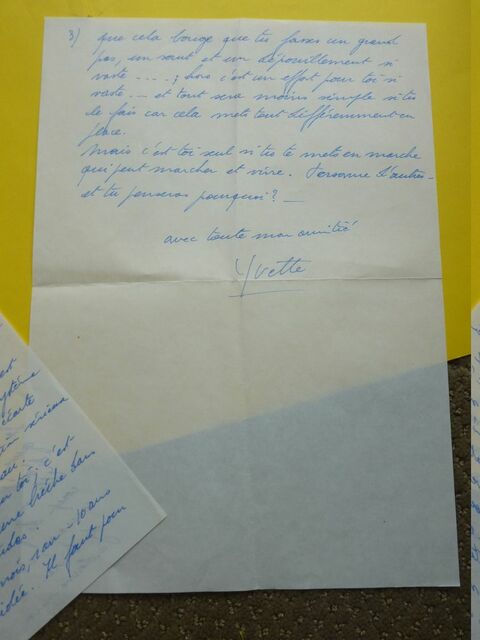 3) que cela bouge que tu fasses un grand
pas, un saut et un dépouillement si
vaste ....; hors c'est un effort pour toi si
vaste -- et tout sera moins simple si tu
le fais car cela mets tout différemment en
place.
Mais c'est toi seul si tu te mets en marche
qui peut marcher et vivre. Personne d'autres -
et tu penseras pourquoi? _
avec toute mon amitié
Yvette
est
toi. c'est
une brèche dans
mois, 1 an - 10 ans
idée. Il faut pour